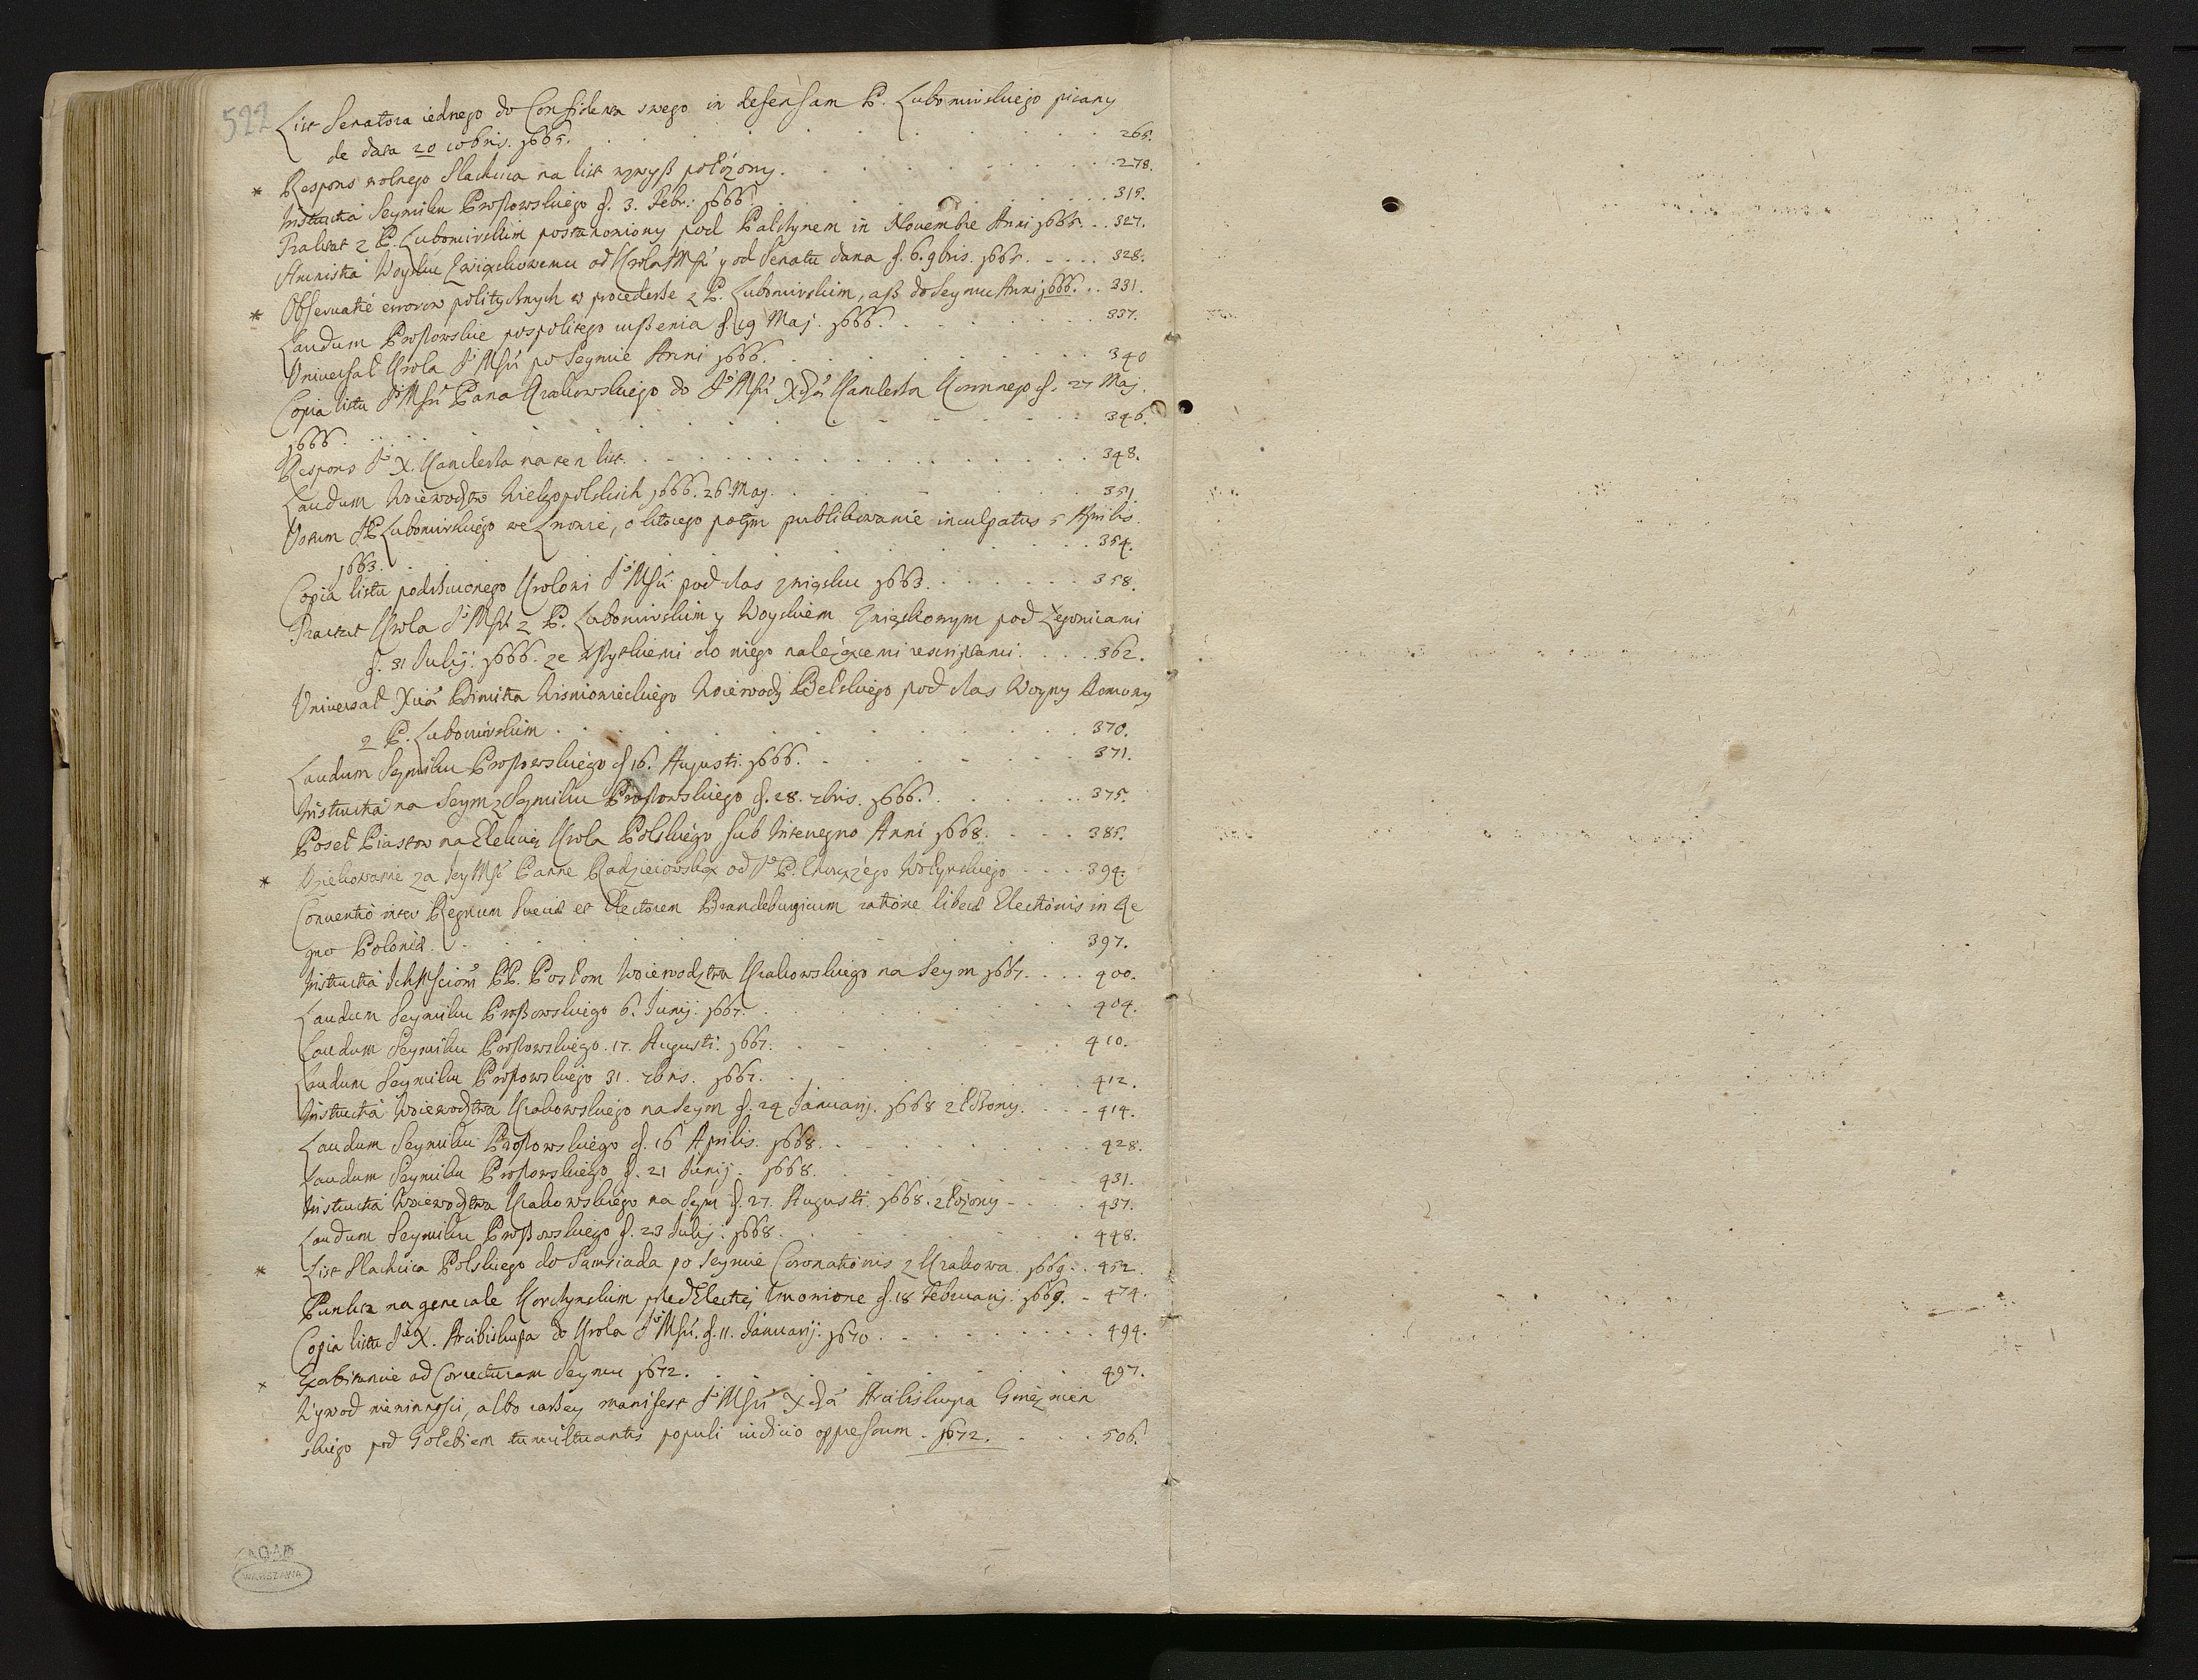 522
List Senatora iednego do Confidenta swego in defensam P. Lubomirskiego pisany
de data 20 Xbris. 1665. 265.
* Respons wolnego Slachcica na list wzwyß położony. 278.
Instructia Seymiku Proßowskiego d. 3. Febr: 1666. 315.
Traktat z P. Lubomirskim postanowiony pod Palczynem in Novembre Anni 1665. 327.
Amnistia Woysku Związkowemu od Krola JMSci y od Senatu dana d. 6. 9bris. 1665. 328.
* Observatie errorow politycznych w procederze z P. Lubomirskim, aß do Seymu Anni 1666. 331.
Laudum Proßowskie pospolitego rußenia d. 19 Maj. 1666. 337.
Universał Krola Jo MSci po Seymie Anni 1666. 340
Copia listu Jo MSci Pana Krakowskiego do Jo MSci Xdza Kanclerza Koronnego d. 27 Maj.
1666. 346.
Respons Jo X. Kanclerza na ten list. 348.
Laudum Woiewodztw Wielgopolskich 1666. 26 Maj. 351.
Votum JP Lubomirskiego we Lwowie, o ktorego potym publikowanie inculpatus 5 Aprilis.
1663. 354.
Copia listu podrzuconego Krolowi Jo MSci pod czas związku 1663. 358.
Tractat Krola Jo MSci z P. Lubomirskim y Woyskiem Związkowym pod Łęgonicami
d. 31 Julij. 1666. ze wßytkiemi do niego należącemi rescriptami. 362.
Universał Xcia Dimitra Wisniowieckiego Woiewody Bełskiego pod czas Woyny Domowy
z P. Lubomirskim 370.
Laudum Seymiku Proßowskiego d 16. Augusti. 1666. 371.
Instructia na Seym z Seymiku Proßowskiego d. 28. 7bris. 1666. 375.
Poseł Piastow na Elekcią Krola Polskiego sub Interregno Anni 1668. 385.
* Dziekowanie za JeyMSc Panne Radzieiowską od Jo P. Chorążego Wołynskiego 394.
Conventio inter Regnum Sueciæ et Electorem Brandeburgicum ratione liberæ Electionis in Re
gno Poloniæ. 397.
Instructia IchMSciom PP. Posłom Woiewodztwa Krakowskiego na Seym 1667. 400.
Laudum Seymiku Proßowskiego 6. Junij. 1667. 404.
Laudum Seymiku Proßowskiego. 17. Augusti. 1667. 410.
Laudum Seymiku Proßowskiego 31. 7bris. 1667. 412.
Instructia Woiewodztwa Krakowskiego na Seym d. 24 Januarij. 1668 złożony. 414.
Laudum Seymiku Proßowskiego d. 16 Aprilis. 1668. 428.
Laudum Seymiku Proßowskiego d. 21 Junij. 1668. 431.
Instructia Woiewodztwa Krakowskiego na Seym d. 27. Augusti. 1668. złożony 437.
Laudum Seymiku Proßowskiego d. 23 Julij. 1668. 448.
* List Slachcica Polskiego do Samsiada po Seymie Coronationis z Krakowa. 1669. 452.
Punkta na generale Korczynskim przed Electią d. 18 Februarij. 1669. 474.
Copia listu Jo X. Arcibiskupa do Krola Jo MSci. d. 11. Januarij. 1670 494.
* ad Correcturam Seymu 1672. 497.
Wywod niewinnosci, albo raczey manifest Jo MSci Xdza Arcibiskupa Gnieznien
skiego pod Gołebiem tumultuantis populi iudicio oppressum. 1672. 506.
AGAD
WARSZAWA